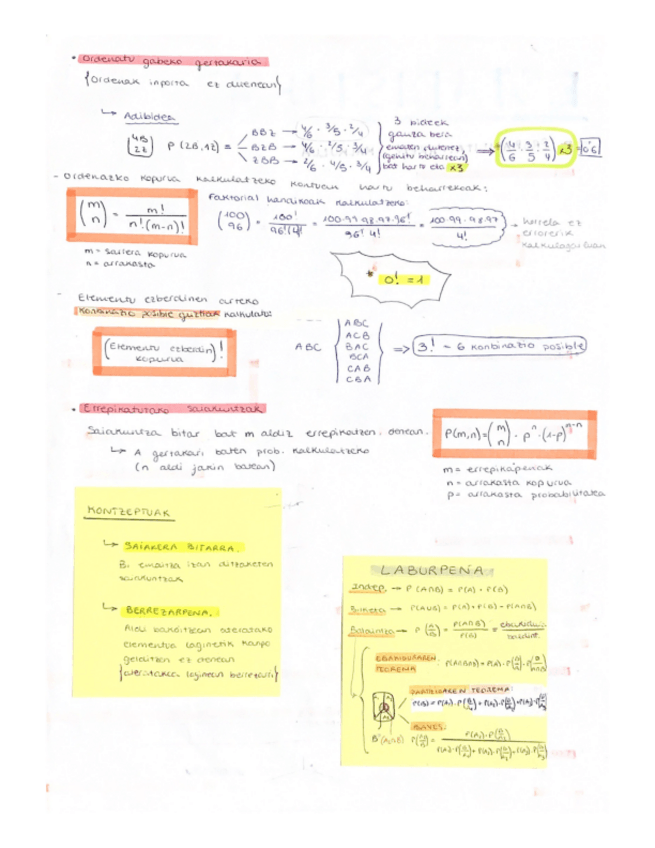 • Ordenatu gabeko gertakaria
{Ordenak inporta ez duenean}
↳ Adibidea
(4B 2Z) P(2B,1Z) =
BBZ → 4/6 · 3/5 · 2/4
BZB → 4/6 · 2/5 · 3/4
ZBB → 2/6 · 4/5 · 3/4
3 bideek
gauza bera
ematen dutenez,
bat hartu eta x3
⇒ (4/6 · 3/5 · 2/4) x3 = 0'6
- Ordenazko kopurua kalkulatzeko kontuan hartu beharrekoak:
(m n) = m! / n!·(m-n)!
m = saiera kopurua
n = arrakasta
Faktorial handikoak kalkulatzeko:
(100 96) = 100! / 96!(4!) = 100·99·98·97·96! / 96! 4! = 100·99·98·97 / 4!
→ horrela ez
errorerik
* 0! = 1
- Elementu ezberdinen arteko
konbinazio posible guztiak kalkulatu:
(Elementu ezberdin kopurua)!
ABC
ABC
ACB
BAC
BCA
CAB
CBA
=> 3! = 6 konbinazio posible
• Errepikatutako saiakuntzak
Saiakuntza bitar bat m aldiz errepikatzen denean.
↳ A gertakari baten prob. kalkulatzeko
(n aldi jakin batean)
P(m,n) = (m n) · pⁿ · (1-p)ᵐ⁻ⁿ
m = errepikapenak
n = arrakasta kopurua
p = arrakasta probabilitatea
KONTZEPTUAK
↳ SAIAKERA BITARRA.
Bi emaitza izan ditzaketen
saiakuntzak
↳ BERREZARPENA.
Aldi bakoitzean ateratako
elementua laginetik kanpo
geratzen ez denean
LABURPENA
Indep. → P(A∩B) = P(A) · P(B)
Bilketa → P(A∪B) = P(A) + P(B) - P(A∩B)
Baldintza → P(A/B) = P(A∩B) / P(B) =
EBAKIDURAREN
TEOREMA
PARTIZIOAREN TEOREMA:
BAYES: